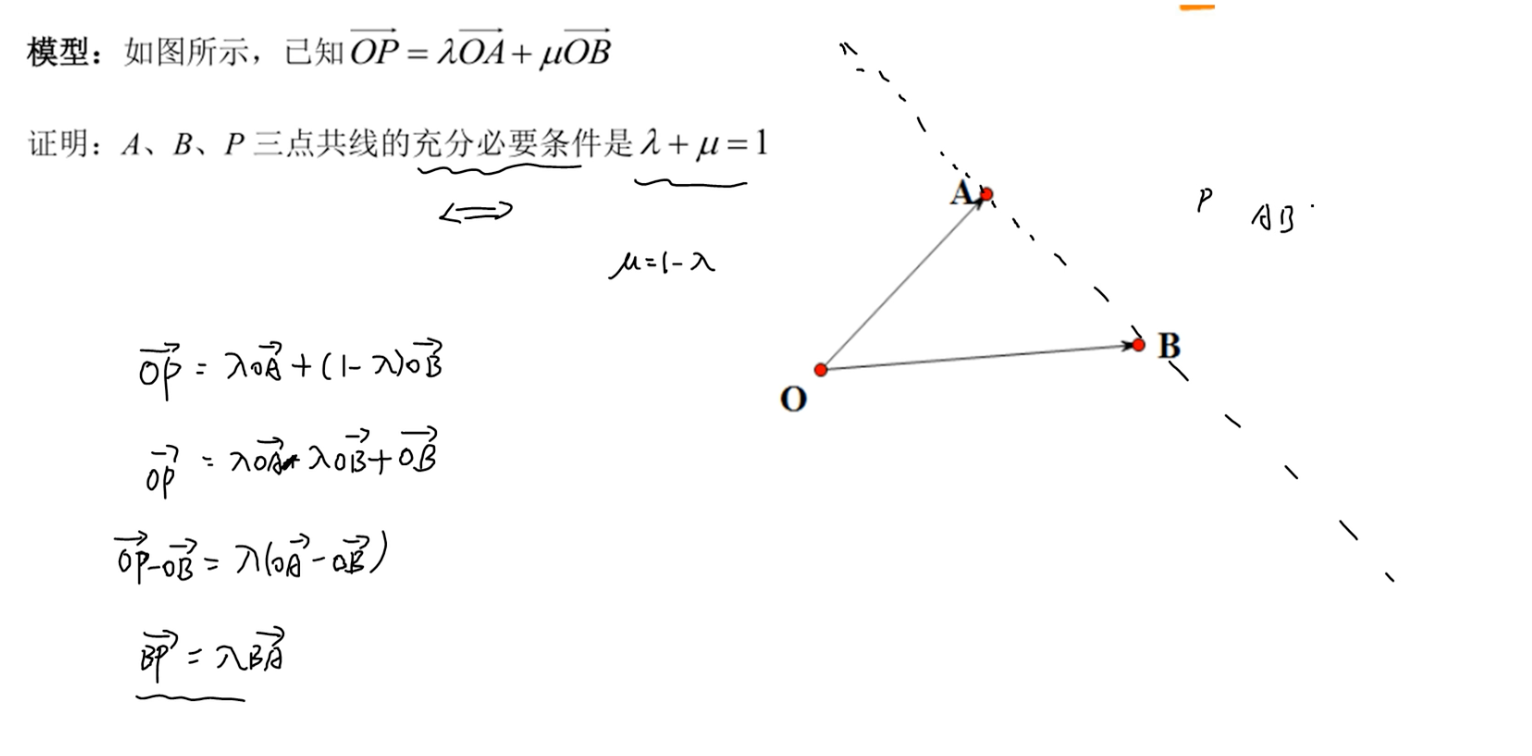 模型：如图所示，已知 $\overrightarrow{OP} = \lambda\overrightarrow{OA} + \mu\overrightarrow{OB}$
证明：A、B、P 三点共线的充分必要条件是 $\lambda + \mu = 1$
⟺
$\mu = 1 - \lambda$
$\overrightarrow{OP} = \lambda\overrightarrow{OA} + (1 - \lambda)\overrightarrow{OB}$
$\overrightarrow{OP} = \lambda\overrightarrow{OA} - \lambda\overrightarrow{OB} + \overrightarrow{OB}$
$\overrightarrow{OP} - \overrightarrow{OB} = \lambda(\overrightarrow{OA} - \overrightarrow{OB})$
$\overrightarrow{BP} = \lambda\overrightarrow{BA}$
A
B
O
P AB